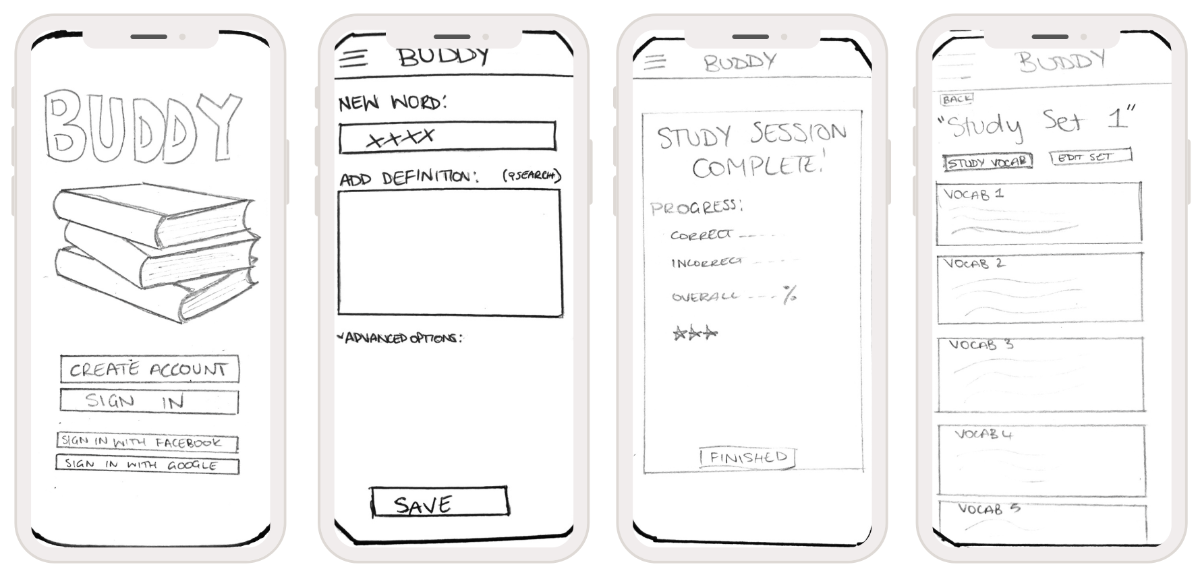 BUDDY
CREATE ACCOUNT
SIGN IN
SIGN IN WITH FACEBOOK
SIGN IN WITH GOOGLE
BUDDY
NEW WORD:
XXXX
ADD DEFINITION: (?SEARCH)
ADVANCED OPTIONS:
SAVE
BUDDY
STUDY SESSION
COMPLETE!
PROGRESS:
CORRECT ----
INCORRECT ----
OVERALL ---%
FINISHED
BUDDY
BACK
"Study Set 1"
STUDY VOCAB EDIT SET
VOCAB 1
VOCAB 2
VOCAB 3
VOCAB 4
VOCAB 5